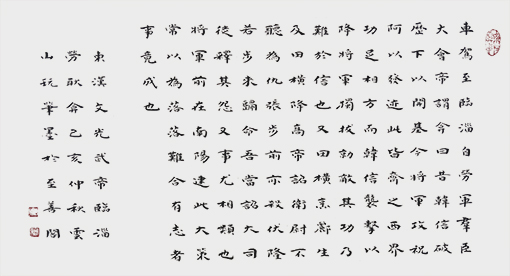 車駕至臨淄自勞軍羣臣
大會帝謂弇曰昔韓信破
歷下以開基今將軍攻祝
阿以發迹此皆齊之西界
功足相方而韓信襲擊以
降將軍獨拔勍敵其功乃
難於信也又田橫烹酈生
及田橫降高帝詔衛尉不
聽為仇張步前亦殺伏隆
若步來歸命吾當詔大司
徒釋其怨又事尤相類也
將軍前在南陽建此大策
常以為落落難合有志者
事竟成也
東漢文光武帝臨淄
勞耿弇己亥仲秋雲
山玩筆墨於至善閣